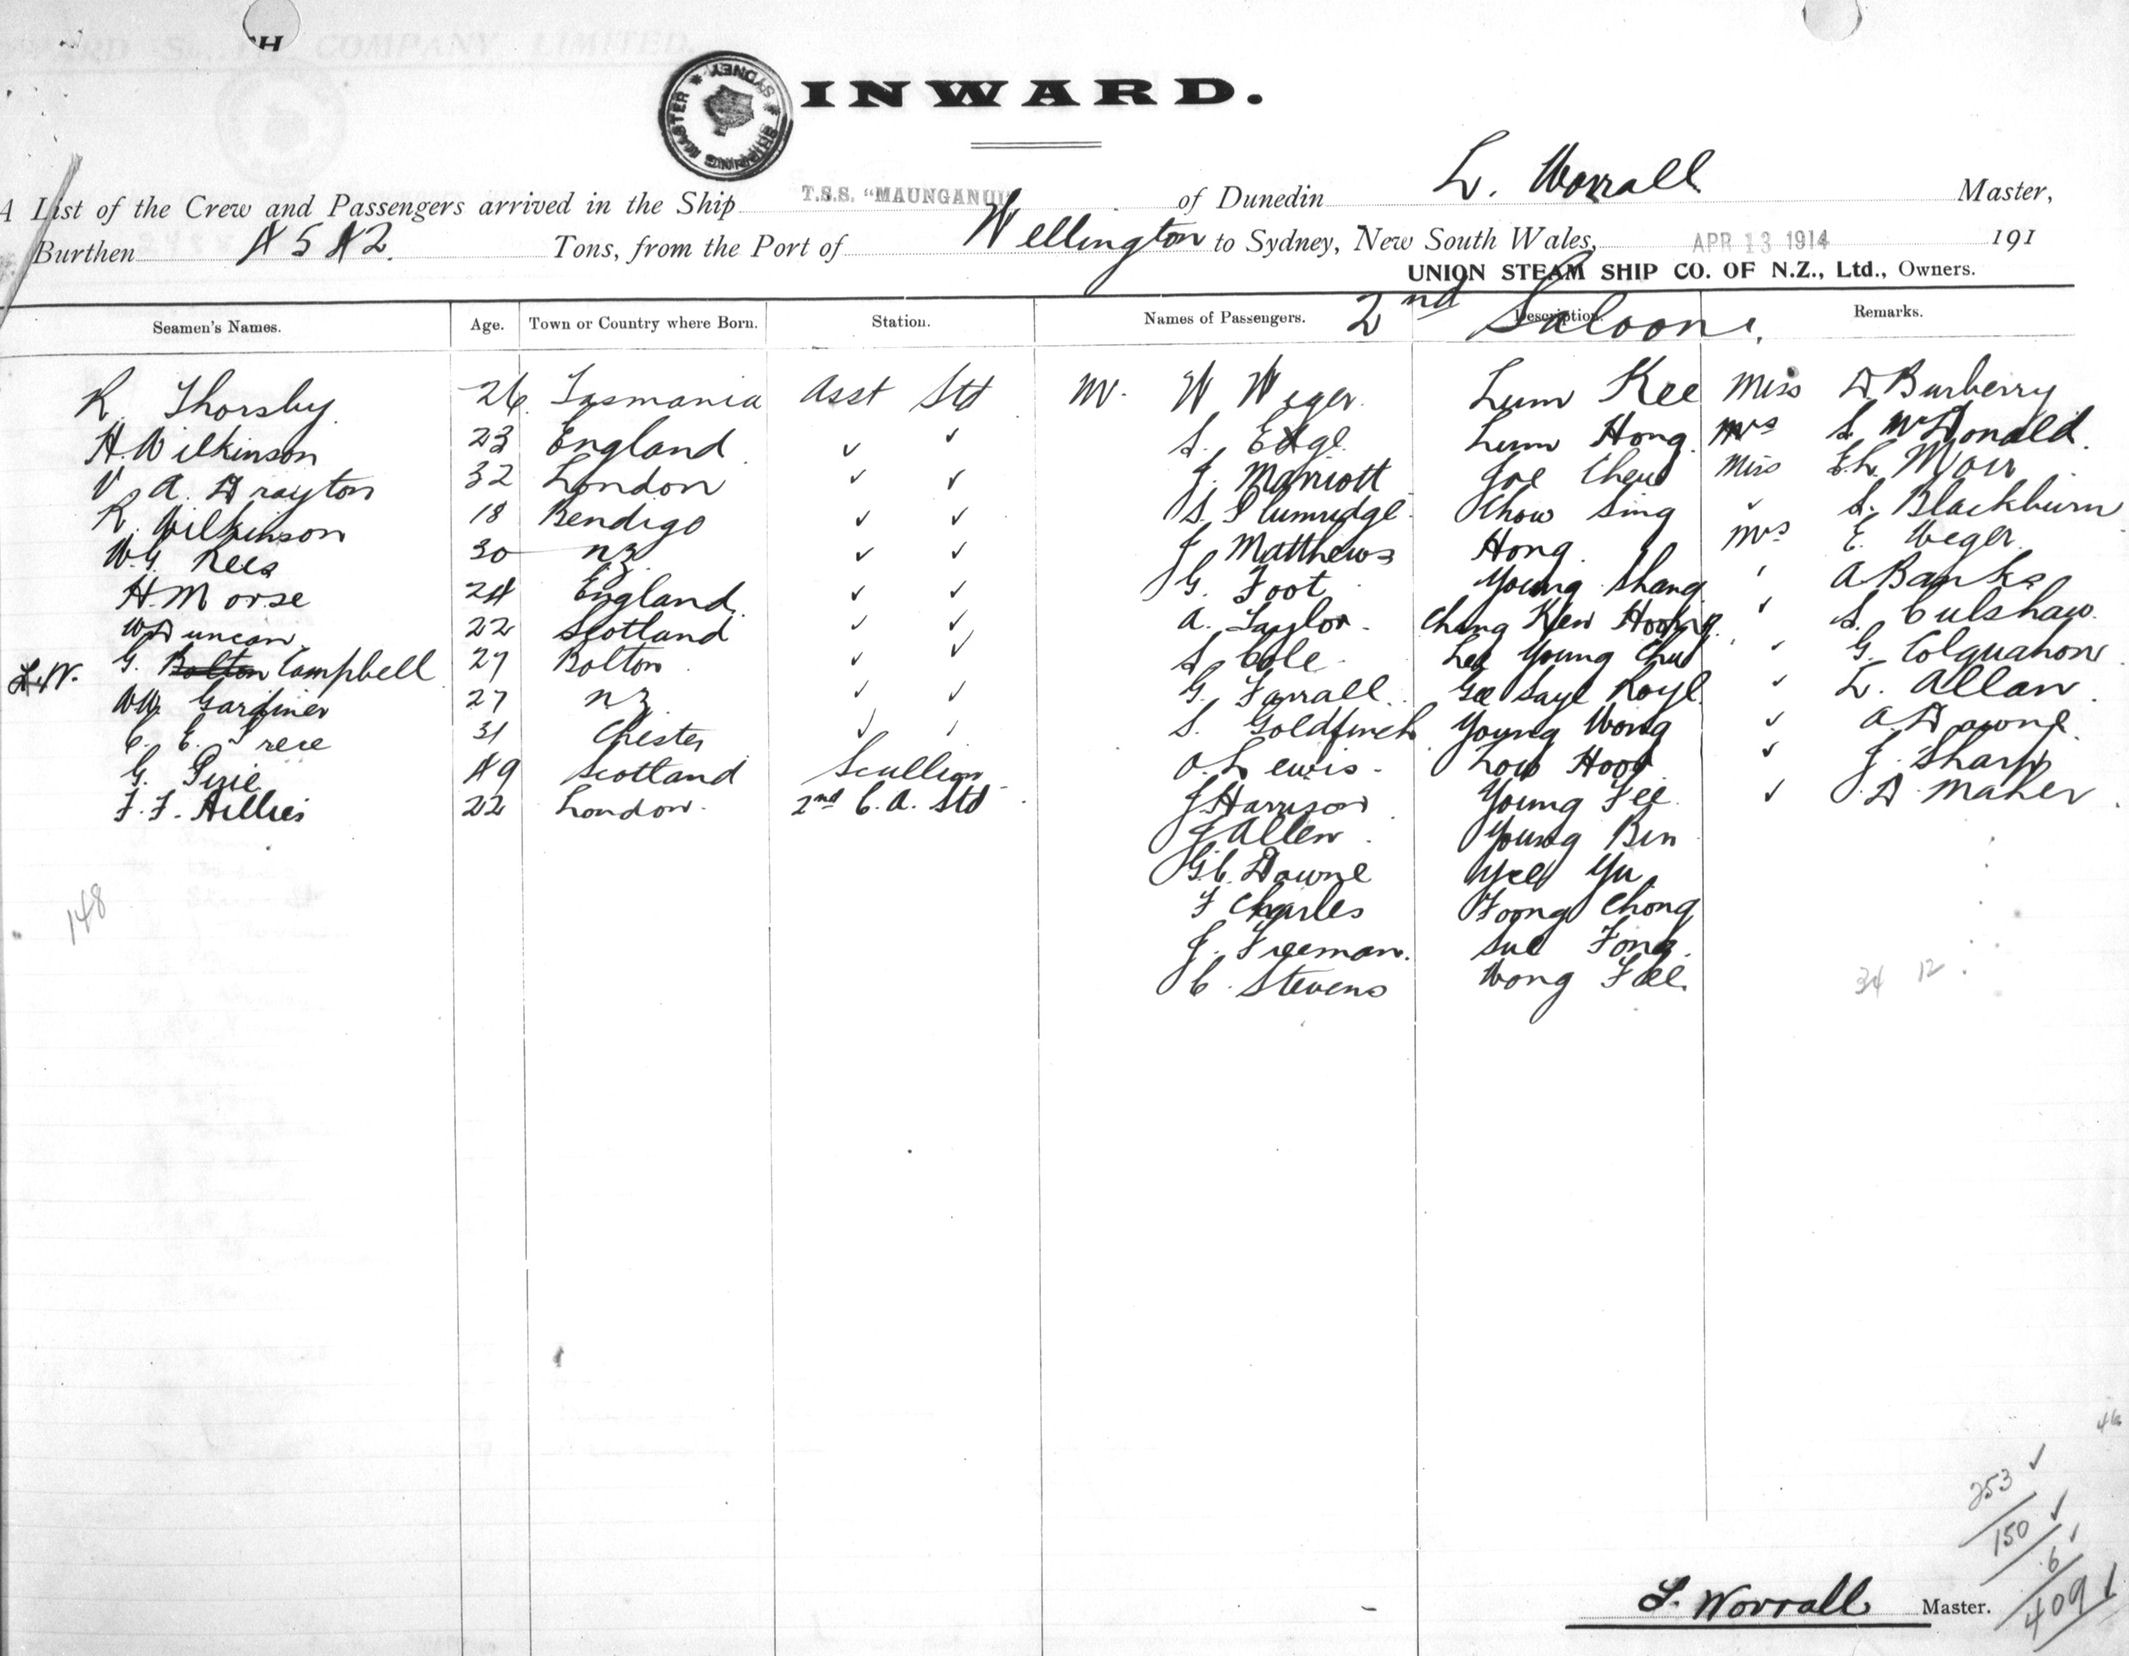 INWARD.
SHIPPING MASTER * SYDNEY *
A List of the Crew and Passengers arrived in the Ship T.S.S. "MAUNGANUI" of Dunedin L. Worrall Master,
Burthen 4542. Tons, from the Port of Wellington to Sydney, New South Wales, APR 13 1914 191
UNION STEAM SHIP CO. OF N.Z., Ltd., Owners.
Seamen's Names. Age. Town or Country where Born. Station. Names of Passengers. Description. Remarks.
2nd Saloon.
R. Thorsby 26. Tasmania Asst Std Mr. W Weger. Lum Kee Miss D. Burberry
H. Wilkinson 23 England ✓ ✓ S. Edge Lum Hong. Mrs S. McDonald.
V. A. Drayton 32 London ✓ ✓ J. Marriott Joe Chew Miss Eh. Moir
R. Wilkinson 18 Bendigo ✓ ✓ S. Plumridge. Chow Sing ✓ S. Blackburn
W.G. Rees 30 NZ ✓ ✓ J Matthews Hong. Mrs E. Weger.
H. Morse 24 England. ✓ ✓ G. Foot Young Shang ' A Banks
W Duncan 22 Scotland ✓ ✓ A. Taylor. Chang Kew ✓ S. Culshaw.
L.W. G. Bolton Campbell 27 Bolton ✓ ✓ S Cole. Lee Young Chu ✓ G. Colquahon
Gardiner 27 NZ ✓ ✓ G. Farrall. Gee Saye ✓ L. Allan
C. E. 31 Chester ✓ ✓ S. Goldfinch Young Wong ✓ A Downe.
G. Pirie 49 Scotland Scullion O. Lewis. Low ✓ J. Sharp
F. F. 22 London. 2nd C. A. Std J Harrison Young Fee ✓ D. Maher.
J Allen. Young Bin
G.C. Downe Yee Yu
F Charles Foong Chong
148
J. Freeman. Sue Fong.
C. Stevens Wong Fee. 34 12.
46
253 ✓
150 ✓
6 ✓
409 ✓
L. Worrall Master.